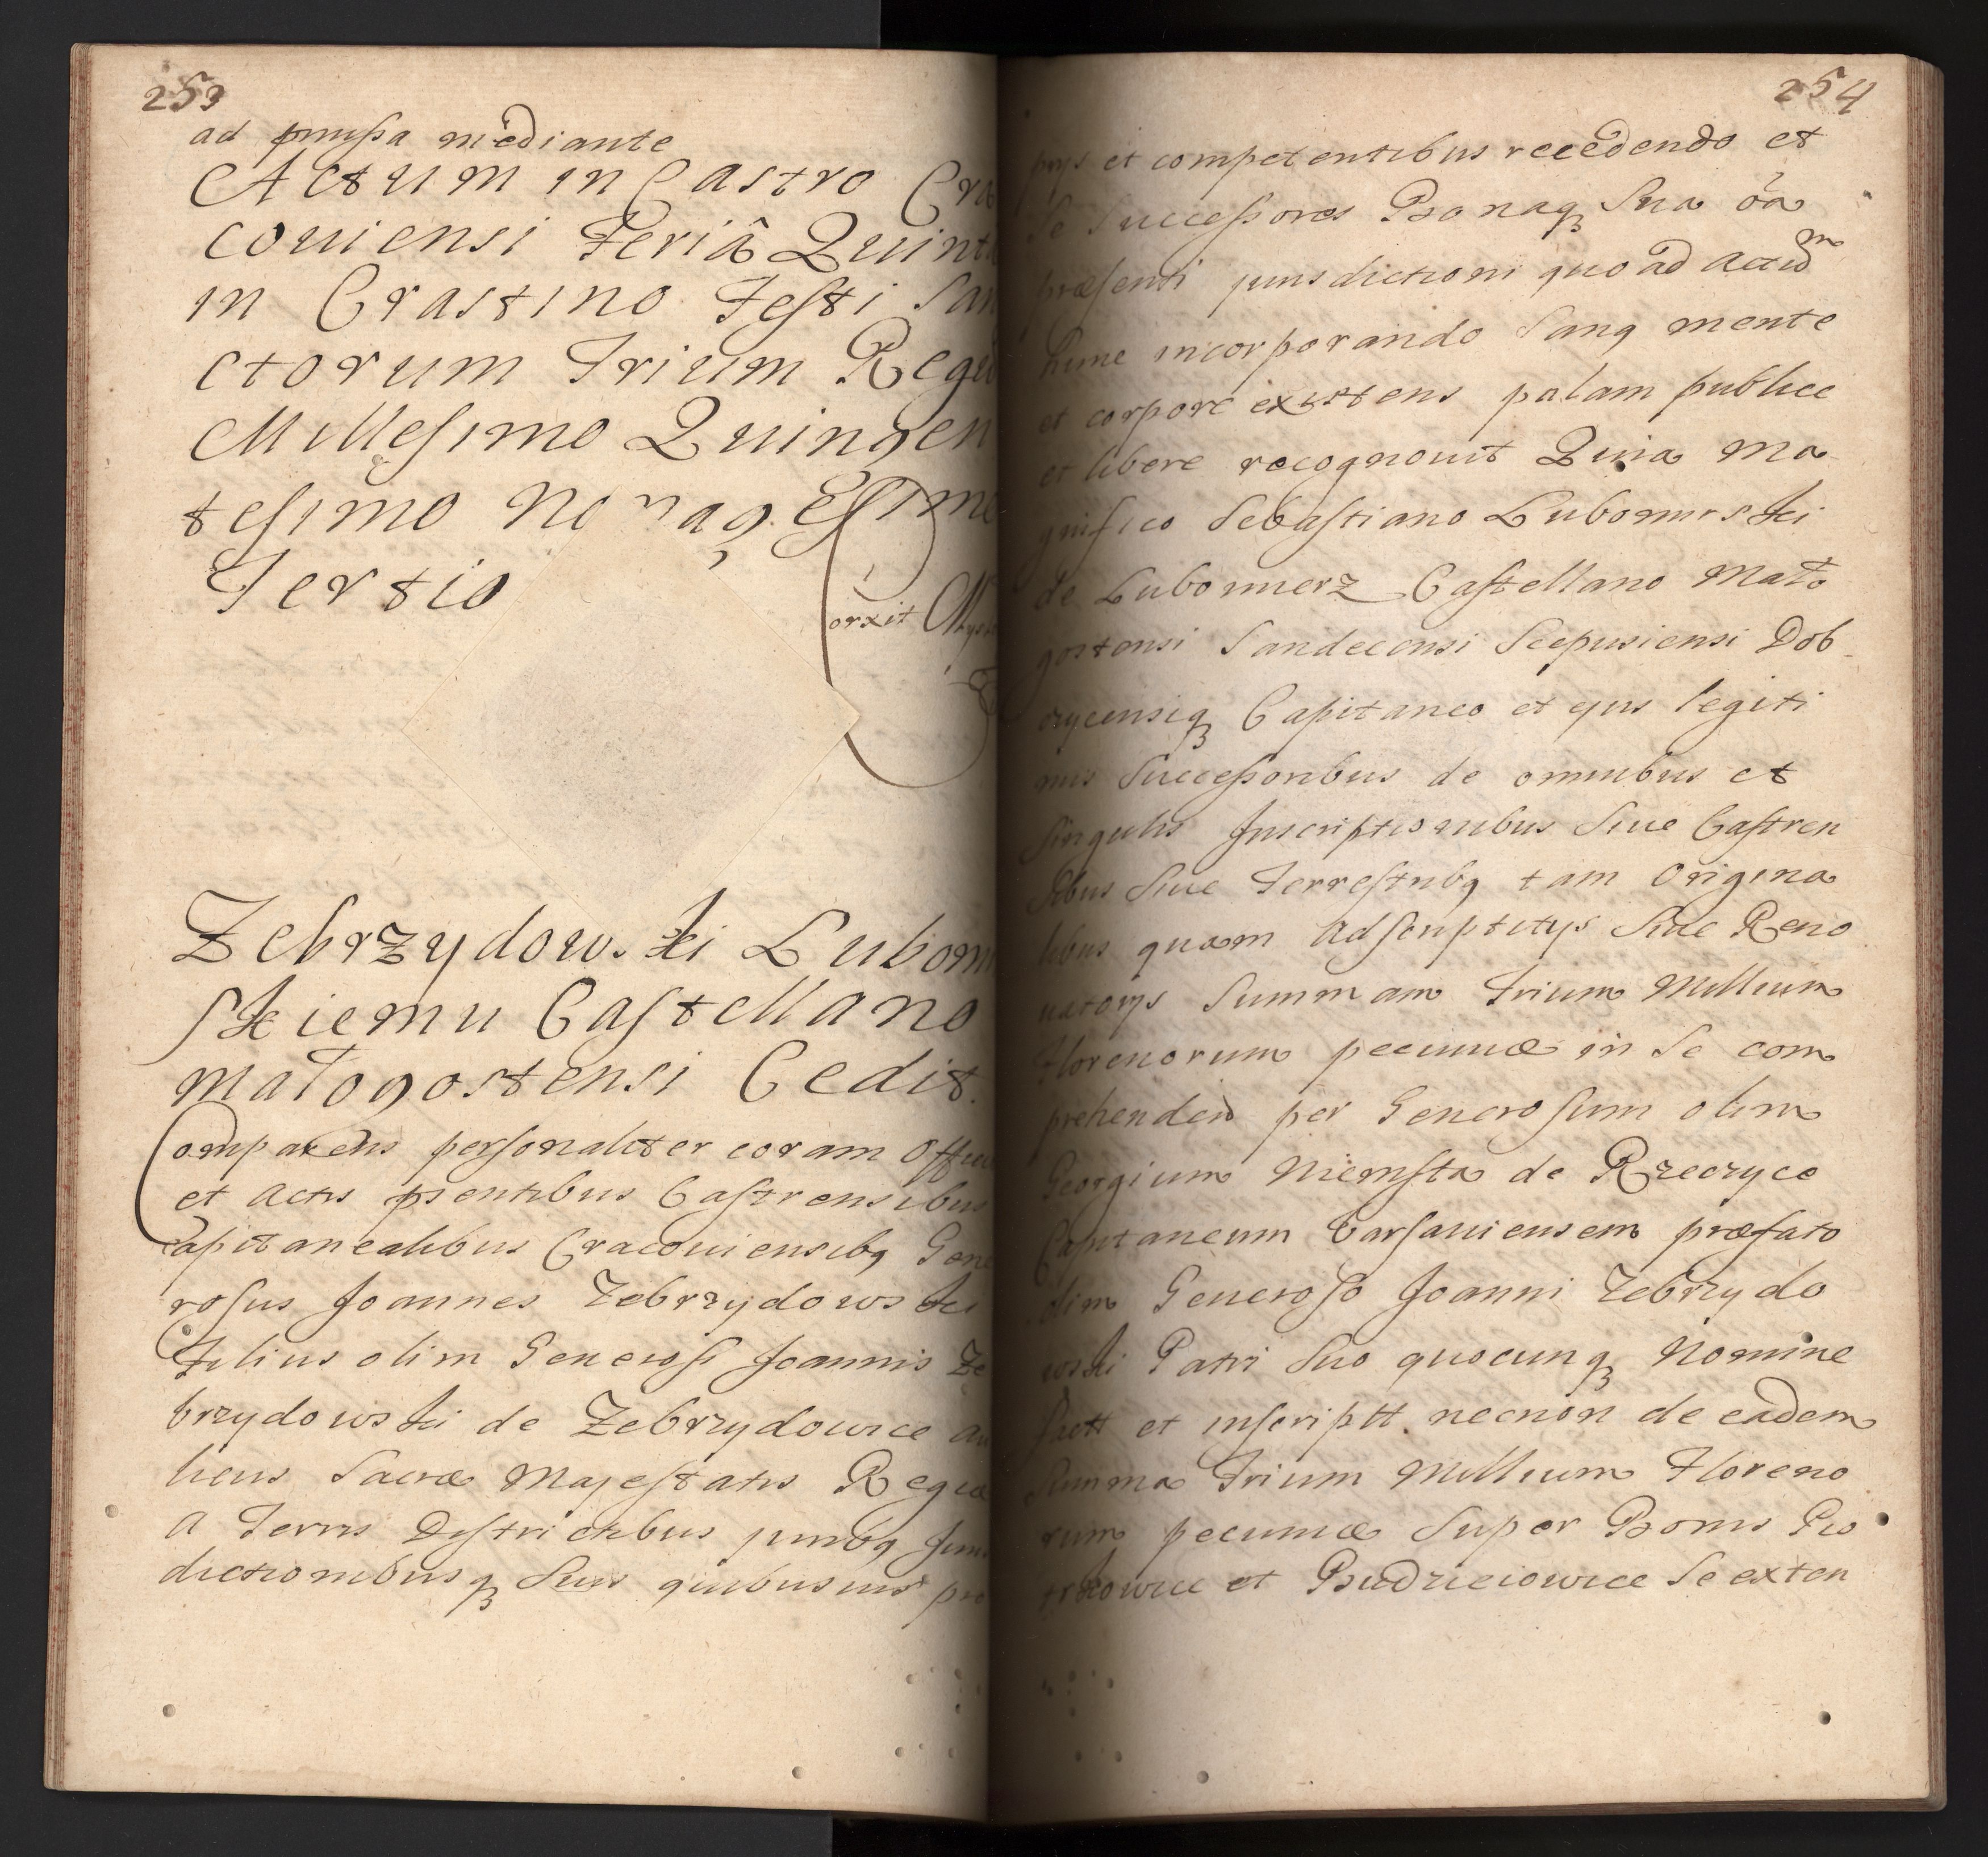 253
ad pmissa mediante
Actum in Castro Cra
coviensi Feriâ Quint
in Crastino Festi San
ctorum Trium Regu
Millesimo Quingen
tesimo Nonagesimo
Tertio
orxit
Zebrzydowski Lubom
skiemu Castellano
małogostensi Cedit.
Comparens personaliter coram Offici
et Actis psentibus Castrensibus
Capitanealibus Cracoviensibq Gene
rosus Joannes Zebrzydowski
Filius olim Generosi Joannis Ze
brzydowski de Zebrzydowice au
licus Sacræ Majestatis Regiæ
A Terris Districtibus
dictionibusq Suis quibusuis pro
254
prijs et competentibus recedendo et
Se Successores Bonaq Sua oa
præsenti jurisdictioni quo ad actum
hunc incorporando Sanq mente
et corpore existens palam publice
et libere recognovit Quia Ma
gnifico Sebastiano Lubomirski
de Lubomierz Castellano Mało
gostensi Sandecensi Scepusiensi Dob
czycensiq Capitaneo et ejus legiti
mis Successoribus de omnibus et
Singulis Inscriptionibus Sive Castren
sibus Sive Terrestribq tam Origina
libus quam Adscriptitijs Sive Reno
vatorijs Summam Trium Millium
Florenorum pecuniæ in Se com
prehenden per Generosum olim
Georgium Niemsta de Krzeczyce
Capitaneum Varsauiensem præfato
olim Generoso Joanni Zebrzydo
wski Patri Suo quocunq Nomine
fact et inscriptt. necnon de eadem
Summa Trium Millium Floreno
rum pecuniæ Super Bonis Pio
trkowice et Budzieiowice Se exten